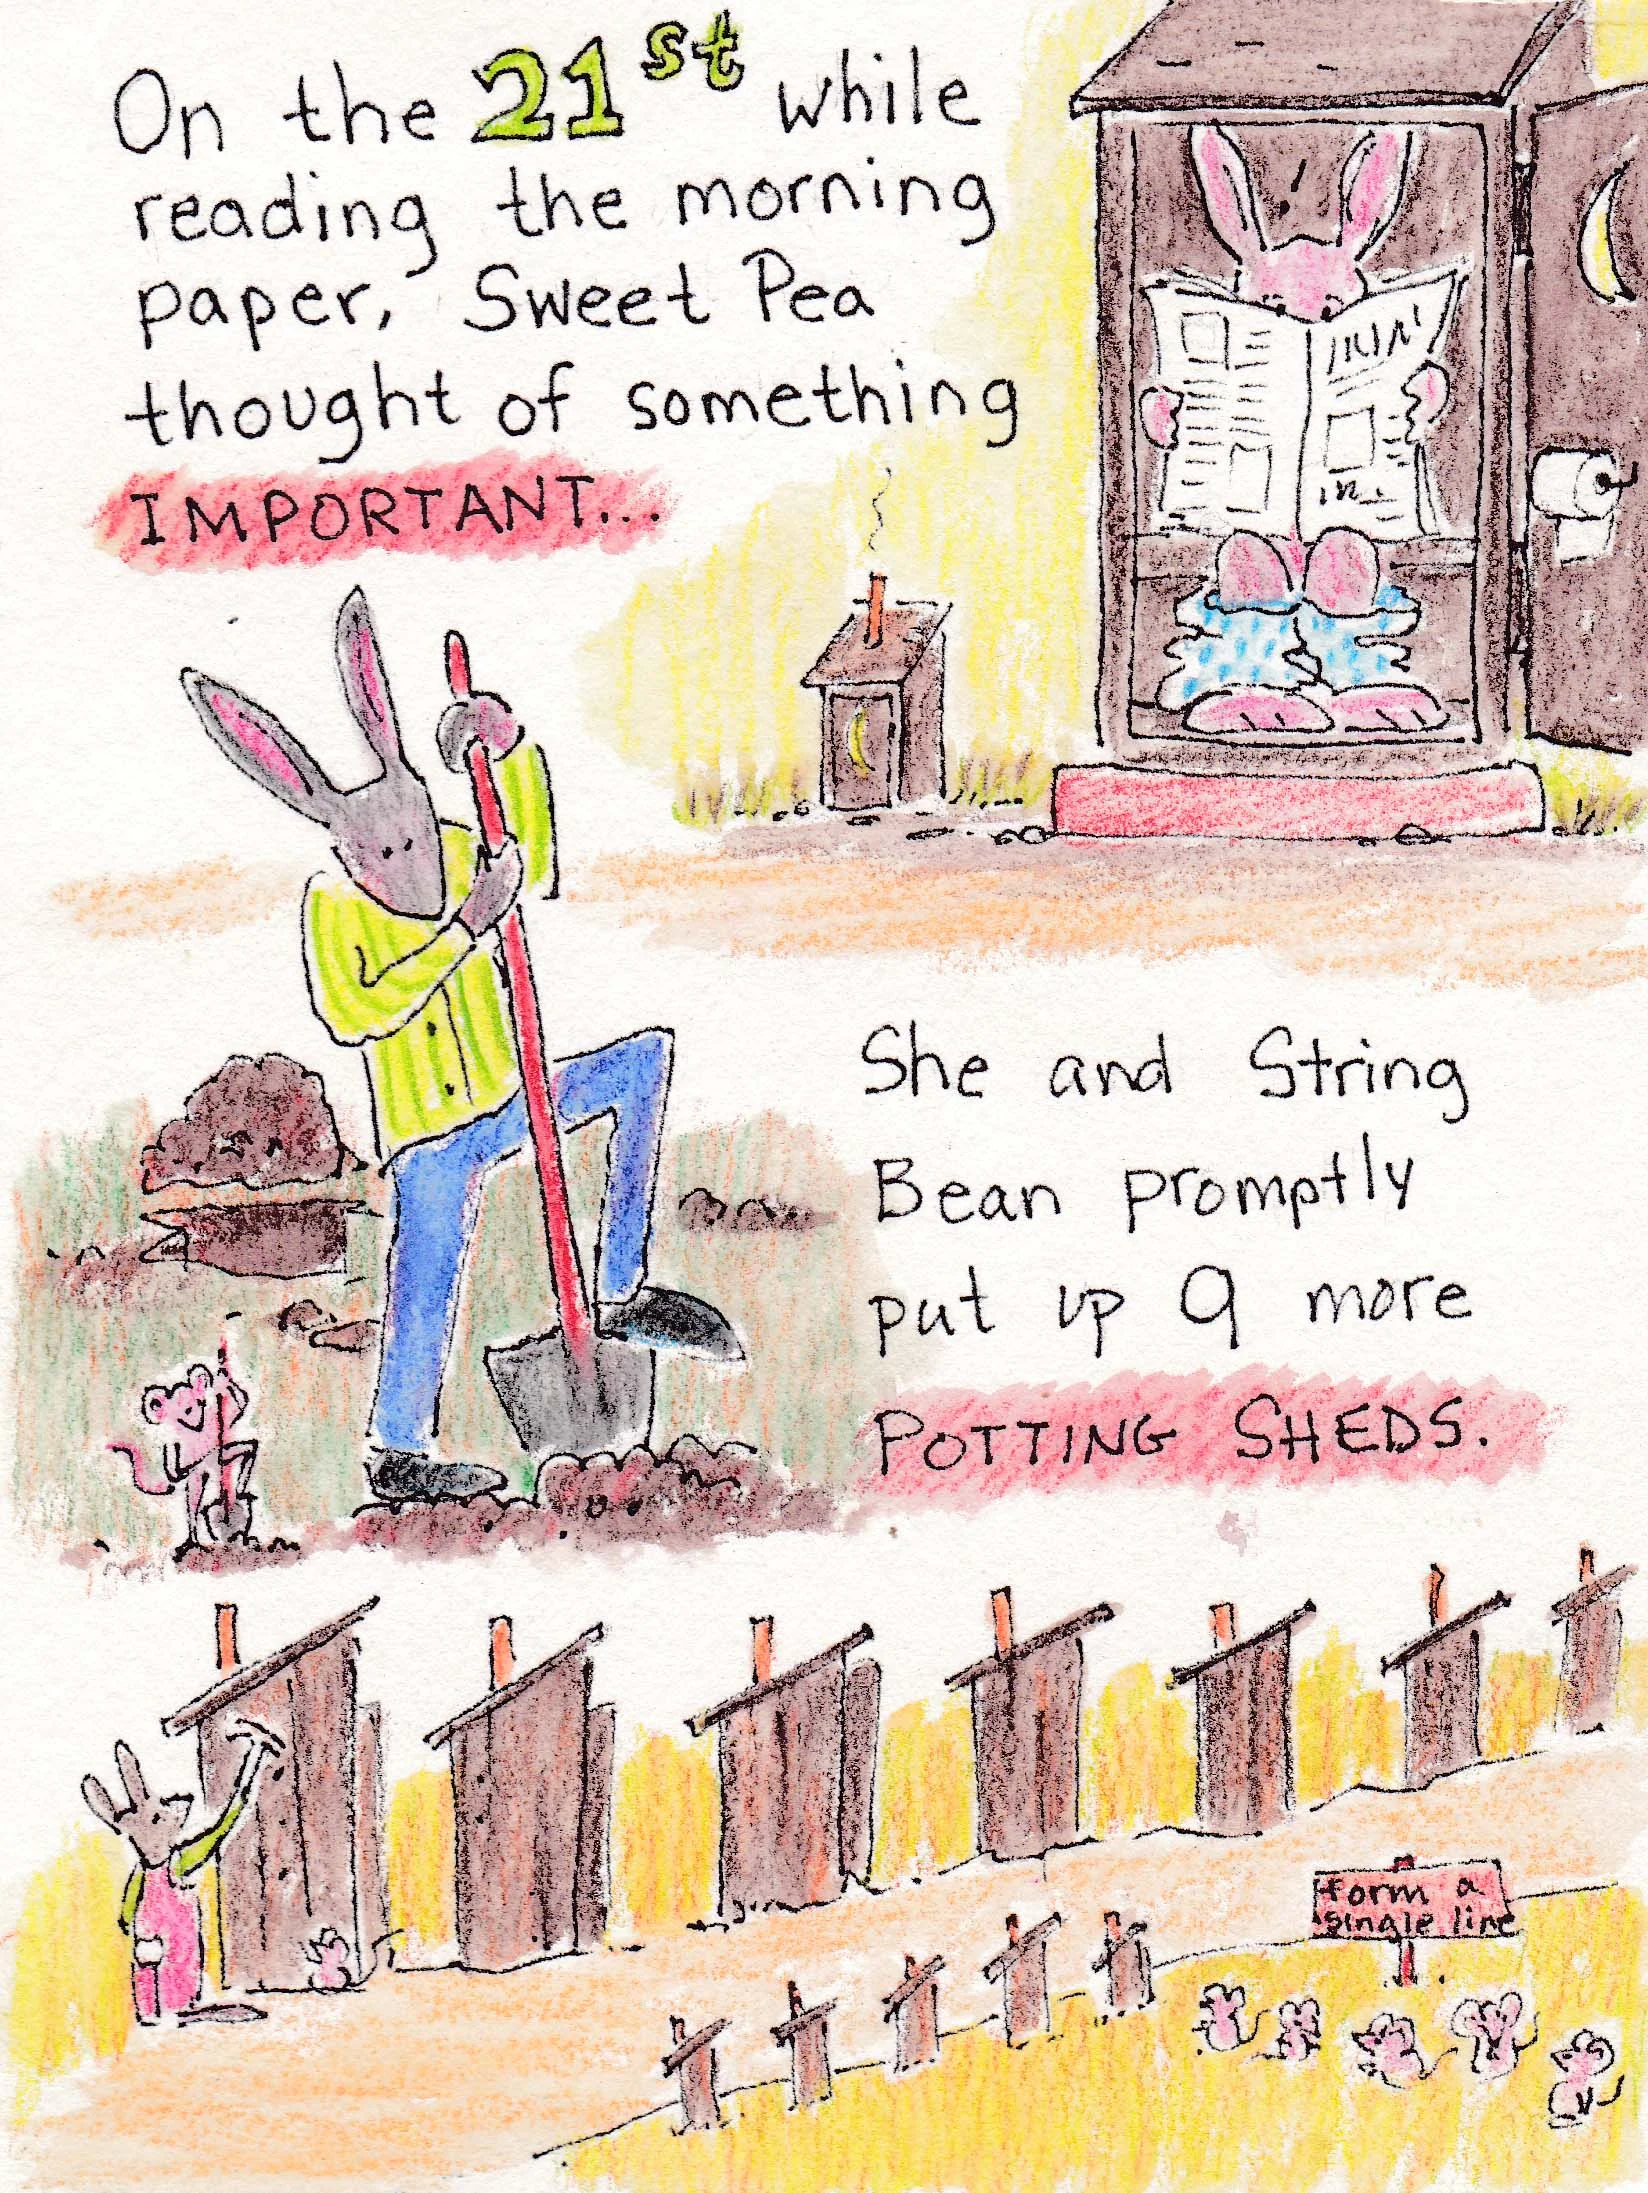 On the 21st while
reading the morning
paper, Sweet Pea
thought of something
IMPORTANT...
She and String
Bean promptly
put up 9 more
POTTING SHEDS.
form a
single line